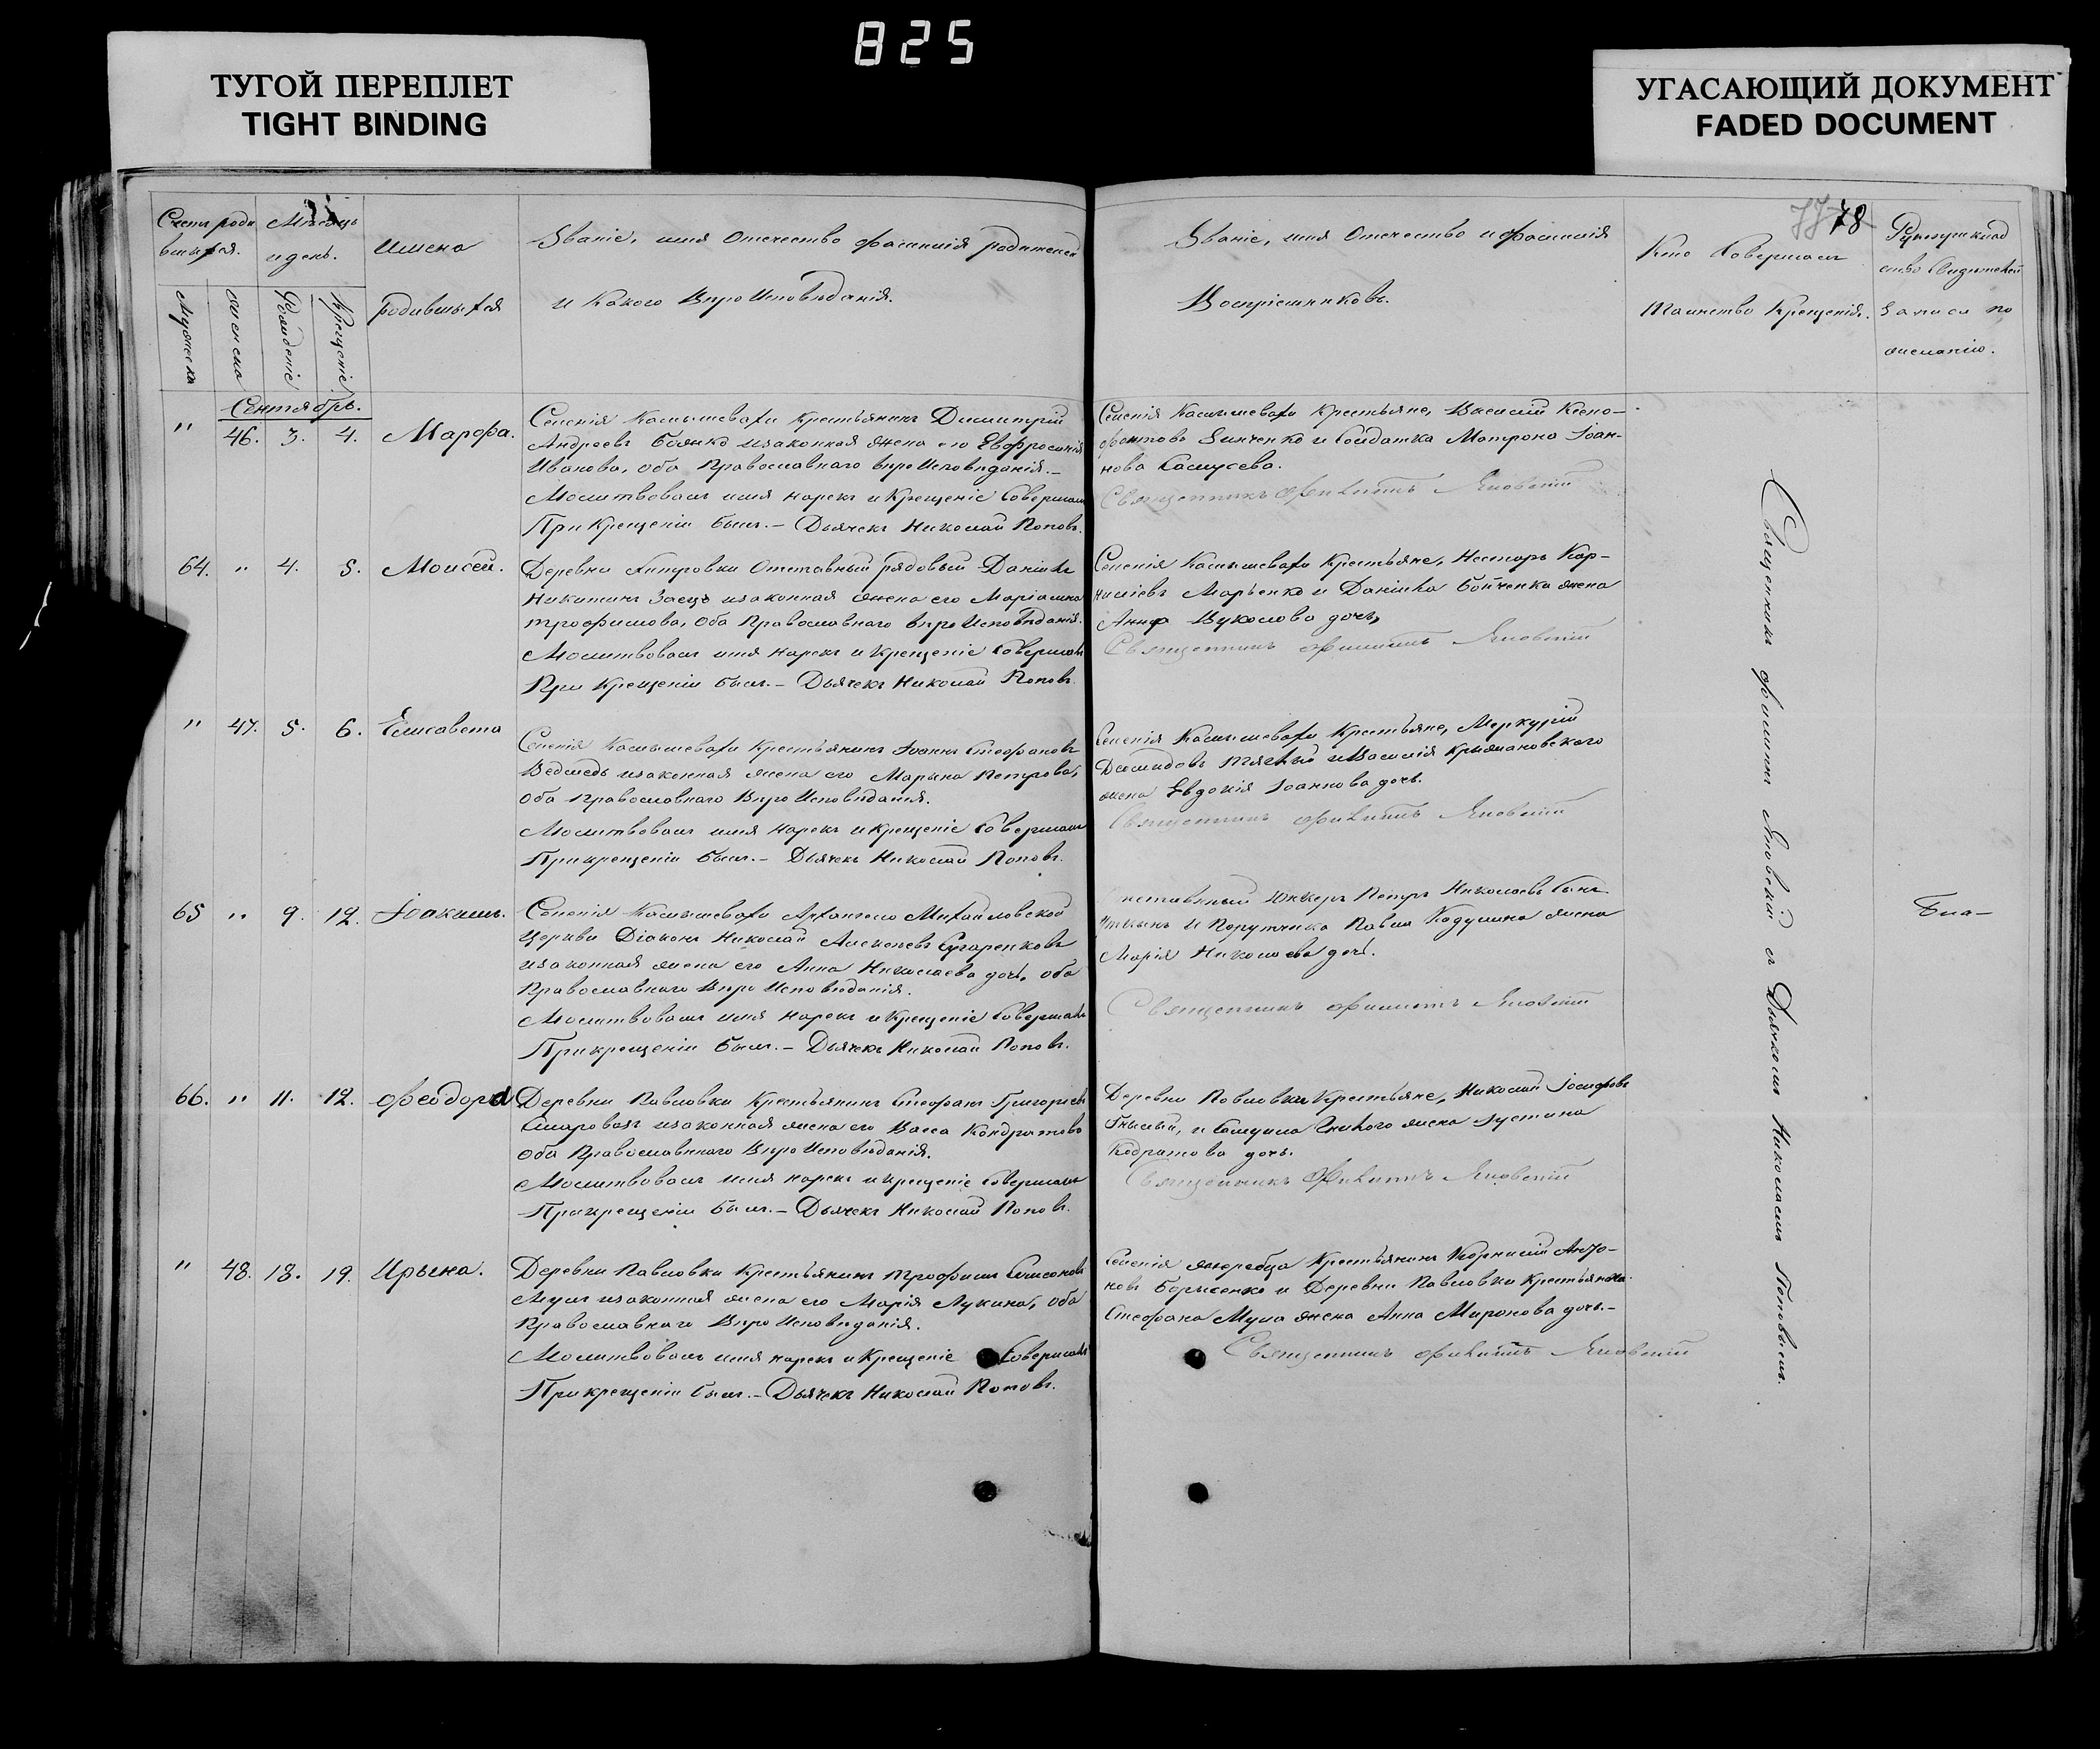 825
ТУГОЙ ПЕРЕПЛЕТ
TIGHT BINDING
УГАСАЮЩИЙ ДОКУМЕНТ
FADED DOCUMENT
78
Счетъ роди
вшихся.
Мѣсяцъ
и день.
Мужеска
женска
Рожденіе
Крещеніе
Имена
родившихся
Званіе, имя Отечество фамилія родителей
и Какого Вѣро Исповѣданія.
Званіе, имя Отечество и фамилія
Воспріемниковъ.
Кто Совершалъ
Таинство Крещенія.
Рукоприклад
ство Свидѣтелей
Записи по
желанію.
Сентябрь.
" 46. 3. 4. Марфа.
Селенія Камышевахи Крестьянинъ Димитрій
Андреевъ Бояко изаконная жена его Евфросинія
Иванова, оба Православнаго вѣро Исповѣданія.-
Молитвовалъ имя нарекъ и Крещеніе Совершалъ
При Крещеніи былъ.- Дьячекъ Николай Поповъ.
Селенія Камышевахи Крестьяне, Василій Ксено-
фонтовъ Зинченко и Солдатка Матрона Іоан-
нова
Священникъ Филиппъ Яновскій
64. " 4. 5. Моисей.
Деревни Отставный рядовый Даніилъ
Никитинъ Заецъ изаконная жена его Маріамна
Трофимова, оба Православнаго вѣро Исповѣданія.
Молитвовалъ имя нарекъ и крещеніе Совершалъ
При Крещеніи былъ.- Дьячекъ Николай Поповъ.
Селенія Камышевахи Крестьяне, Несторъ Кор-
ниліевъ Марченко и Даніила Бойченка жена
Анна Вуколова дочь,
Священникъ Филиппъ Яновскій
" 47. 5. 6. Елисавета
Селенія Камышевахи Крестьянинъ Іоаннъ Стефановъ
Ведмедь изаконная жена его Марына Петрова,
оба православнаго Вѣро Исповѣданія.
Молитвовалъ имя нарекъ и крещеніе Совершалъ
При крещеніи былъ.- Дьячекъ Николай Поповъ.
Селенія Камышевахи Крестьяне, Меркурій
Демидовъ и Василія Крыжановскаго
жена Евдокія Іоаннова дочь.
Священникъ Филиппъ Яновскій
65 " 9. 12. Іоакимъ.
Селенія Камышевахи Архангело Михайловской
Церкви Діаконъ Николай Алексѣевъ
изаконная жена его Анна Николаева дочь, оба
Православнаго Вѣро Исповѣданія.
Молитвовалъ имя нарекъ и Крещеніе Совершалъ
При крещеніи былъ.- Дьячекъ Николай Поповъ.
Отставный Юнкеръ Петръ Николаевъ Сынъ
и Порутчика Павла жена
Марія Николаева дочь.
Священникъ Филиппъ Яновскій
66. " 11. 12. Феодоръ
Деревни Павловки Крестьянинъ Стефанъ Григорьевъ
изаконная жена его Васса Кондратова
оба Православнаго Вѣро Исповѣданія.
Молитвовалъ имя нарекъ и крещеніе Совершалъ
При крещеніи былъ.- Дьячекъ Николай Поповъ.
Деревни Павловки Крестьяне, Николай Іосифовъ
и Самуила жена Іустина
Кодратова дочь.
Священникъ Филиппъ Яновскій
" 48. 18. 19. Ирына.
Деревни Павловки Крестьянинъ Трофимъ
Мула изаконная жена его Марія Лукина, оба
Православнаго Вѣро Исповѣданія.
Молитвовалъ имя нарекъ и Крещеніе Совершалъ
При крещеніи былъ.- Дьячекъ Николай Поповъ.
Селенія жеребца Крестьянинъ Корнилій Анто-
новъ Борисенко и Деревни Павловки Крестьянина
Стефана Мула жена Анна Миронова дочь.-
Священникъ Филиппъ Яновскій
Священникъ Филиппъ Яновскій съ Дьячкомъ Николаемъ Поповымъ.